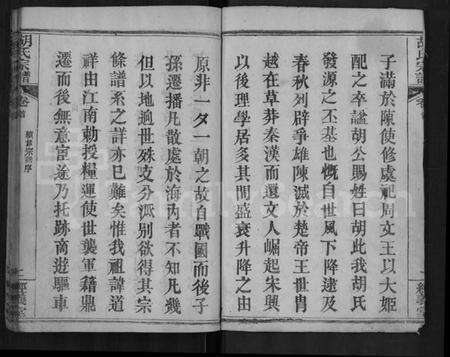 子滿於陳使修處祀周女王以大姬
配之卒諡胡公賜姓曰胡此我胡氏
發源之丕基也慨自世風下降逮及
春秋列辟爭雄陳滅於楚帝王世胄
越在草莽秦漢而還文人崛起宋興
以後理學居多其間盛衰升降之由
原非一夕一朝之故自戰國而後子
孫遷播凡散處於海內者不知凡幾
但以地逈世殊支分派別欲得其宗
條譜系之詳亦已難矣惟我祖諱道
祥由江南勅授糧運使世襲軍籍鼎
遷而後無意宦途乃托跡商遊驅車
胡氏宗譜
卷首